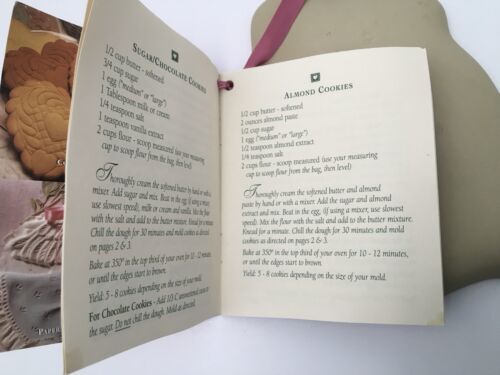 SUGAR/CHOCOLATE COOKIES
1/2 cup butter - softened
3/4 cup sugar
1 egg ("medium" or "large")
1 Tablespoon milk or cream
1/4 teaspoon salt
1 teaspoon vanilla extract
2 cups flour - scoop measured (use your measuring
cup to scoop flour from the bag, then level)
Thoroughly cream the softened butter by hand or with a
mixer. Add sugar and mix. Beat in the egg, (if using a mixer,
use slowest speed), milk or cream and vanilla. Mix the flour
with the salt and add to the butter mixture. Knead for a minute.
Chill the dough for 30 minutes and mold cookies as directed
on pages 2 & 3.
Bake at 350° in the top third of your oven for 10 - 12 minutes
or until the edges start to brown.
Yield: 5 - 8 cookies depending on the size of your mold.
For Chocolate Cookies - Add 1/3 C unsweetened cocoa to
the sugar. Do not chill the dough. Mold as directed.
PAPER
ALMOND COOKIES
1/2 cup butter - softened
2 ounces almond paste
1/2 cup sugar
1 egg ("medium" or "large")
1/2 teaspoon almond extract
1/4 teaspoon salt
2 cups flour - scoop measured (use your measuring
cup to scoop flour from the bag, then level)
Thoroughly cream the softened butter and almond
paste by hand or with a mixer. Add the sugar and almond
extract and mix. Beat in the egg, (if using a mixer, use
slowest speed). Mix the flour with the salt and add to the butter mixture.
Knead for a minute. Chill the dough for 30 minutes and mold
cookies as directed on pages 2 & 3.
Bake at 350° in the top third of your oven for 10 - 12 minutes,
or until the edges start to brown.
Yield: 5 - 8 cookies depending on the size of your mold.